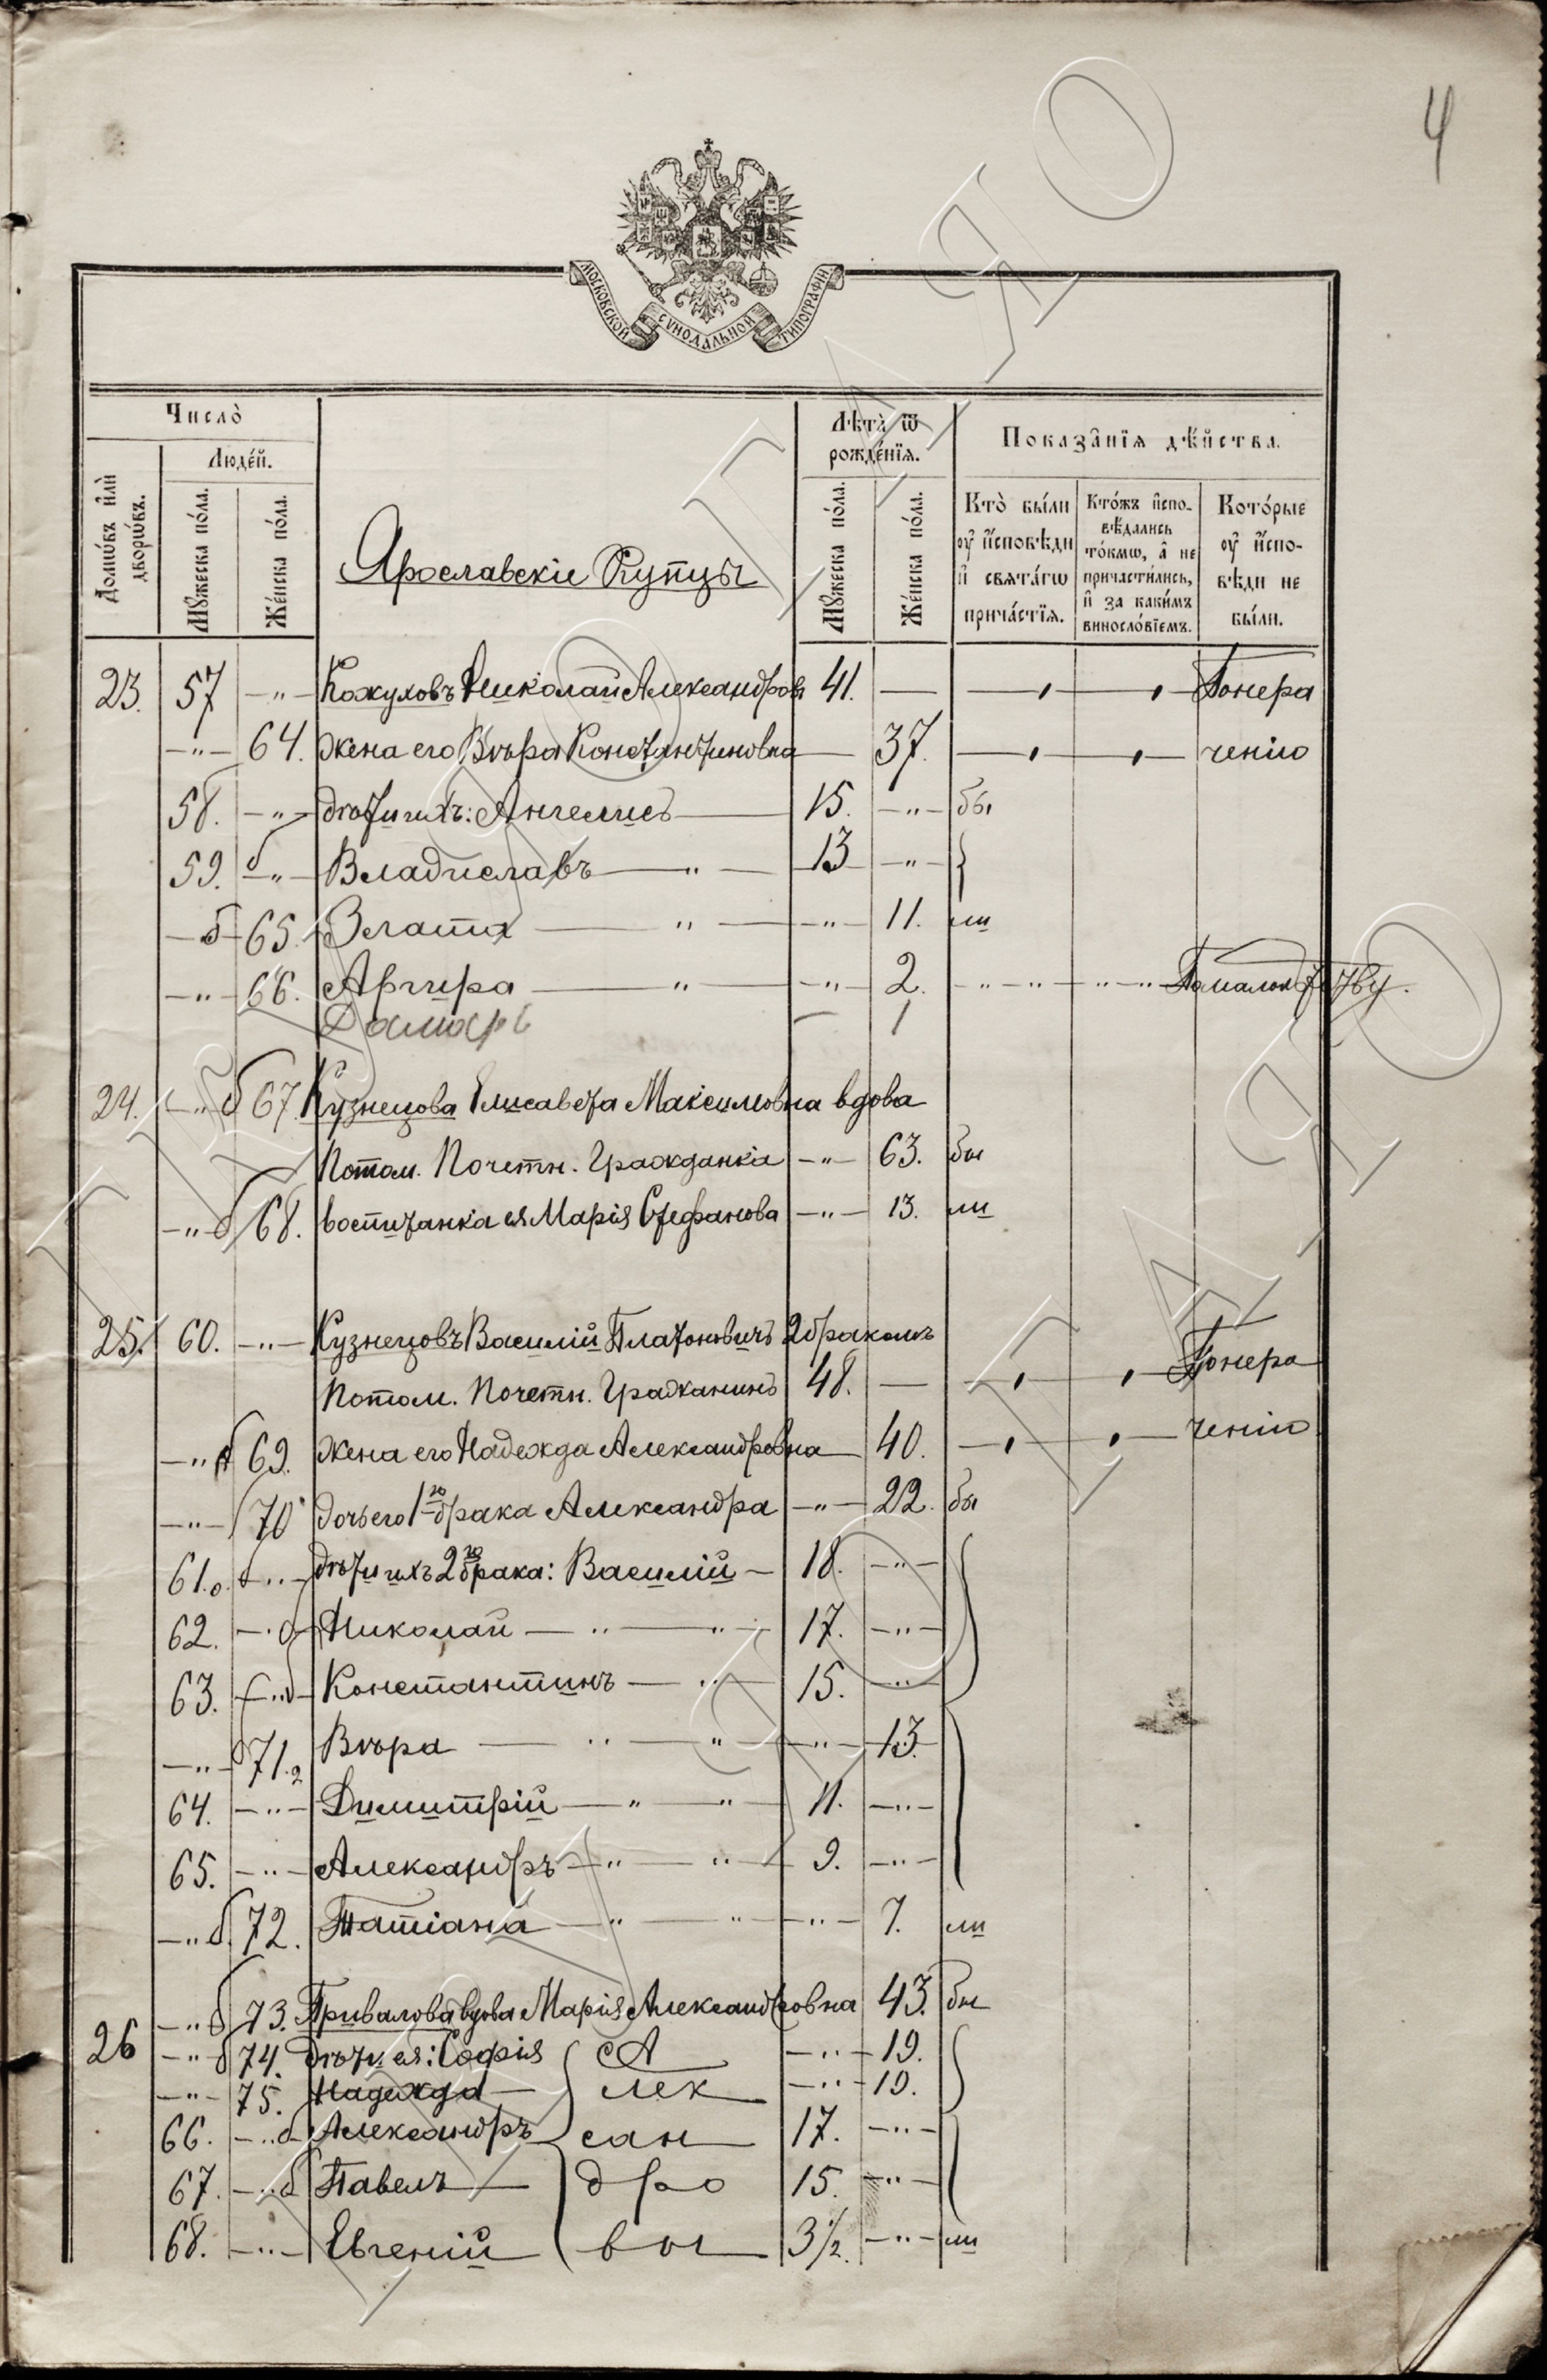 4
МОСКОВСКОЙ СѴНОДАЛЬНОЙ ТИПОГРАФІИ
Число̀
Домѡ́въ и҆лѝ дворѡ́въ.
Люде́й.
Мꙋ́жеска по́ла.
Же́нска по́ла.
Ярославскіе Купцы
Лѣта̀ ѿ рожде́нїѧ.
Мꙋ́жеска по́ла.
Же́нска по́ла.
Показа̑нїѧ дѣ́йства.
Кто̀ бы́ли оу҆ и҆́сповѣди и҆ свѧта́гѡ прича́стїѧ.
Кто́жъ и҆спо-вѣ́дались то́кмѡ, а҆ не причасти́лись, и҆ за каки́мъ винословїемъ.
Кото́рые оу҆ и҆́спо-вѣди не бы́ли.
23. 57 -"- Кожуховъ Николай Александров 41. — — , — , — По нера
-"- 64. жена его Вѣра Константиновна — 37. — , — , — ченію
58. -"- дѣти ихъ: Ангелисъ — 15. -"- бы
59. б -"- Владиславъ — " — 13 -"- }
— б 65. Злата — " — -"- 11. ли
-"- 66. Аргира — " — -"- 2. -"-"-"-"- По малолѣтству.
Дамарь — 1
24. -"- б 67. Кузнецова Елисавета Максимовна вдова
Потом. Почетн. Гражданка -"- 63. бы
-"- б 68. воспитанка ея Марія Стефанова -"- 13. ли
25. 60. -"- Кузнецовъ Василій Платоновичъ 2 бракомъ
Потом. Почетн. Гражданинъ 48. — — , — , — По нера
-"- б 69. жена его Надежда Александровна — 40. — , — , — ченію
-"- 70 дочь его 1го брака Александра -"- 22. бы
61. б -"- дѣти ихъ 2го брака: Василій — 18. -"-
62. -"- б Николай — " — " — 17. -"-
63. -"- б Константинъ — " — 15. -"-
-"- б 71. Вѣра — " — " — -"- 13.
64. -"- Димитрій — " — " — 11. -"-
65. -"- Александръ — " — " — 9. -"-
-"- б 72. Татіана — " — " — -"- 7. ли
-"- б 73. Привалова вдова Марія Александровна 43. бы
26 -"- б 74. дѣти ея: Софія { А -"- 19. }
-"- 75. Надежда — лек -"- 19.
66. -"- б Александръ сан 17. -"-
67. -"- б Павелъ — дро 15. -"-
68. -"- Евгеній вы 3½. -"- ли
ГКУ ЯО ГАЯО